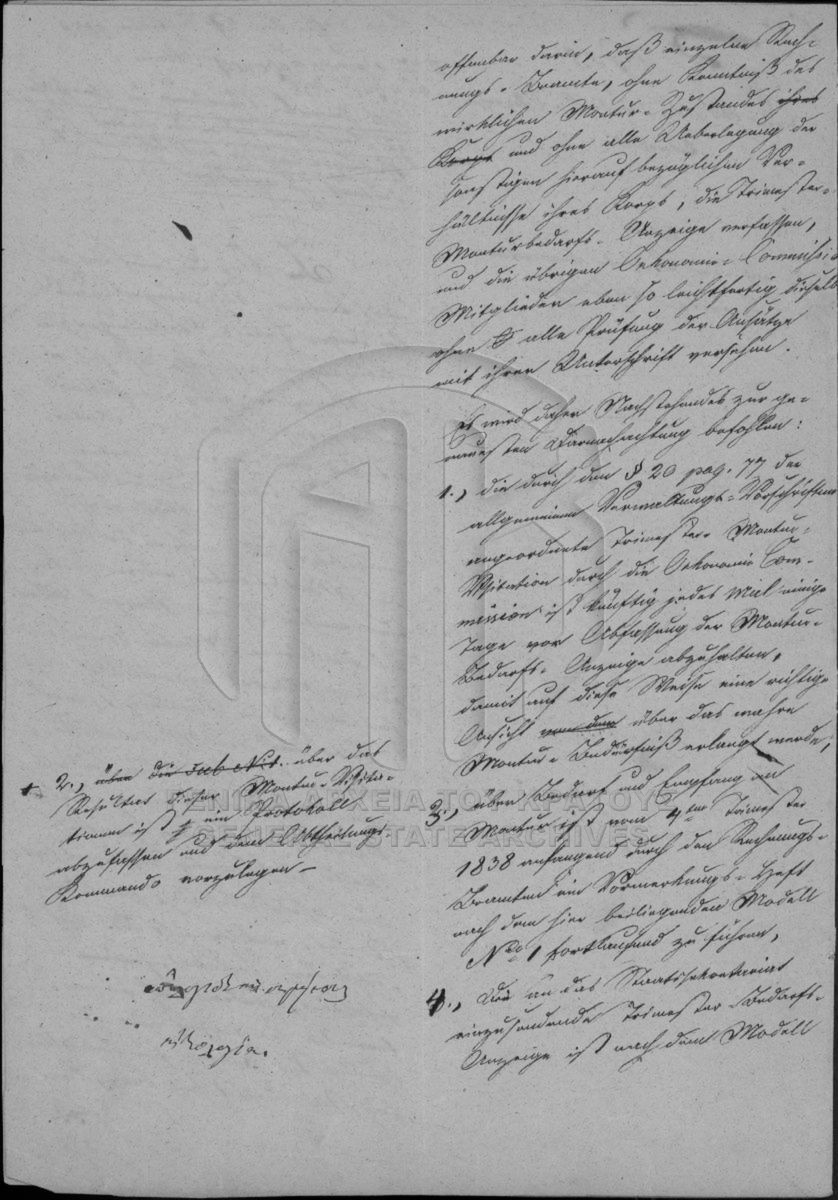 offenbar darin, daß einzelne Rech-
nungs-Beamte, ohne Kenntniß des
wirklichen Montur-Zustandes ihres
Korps und ohne alle Ueberlegung der
sonstigen hierauf bezüglichen Ver-
hältnisse ihres Korps, die Trimester-
Monturbedarfs-Anzeige verfassen,
und die übrigen Oekonomie-Commissions
Mitglieder eben so leichtfertig dieselbe
ohne alle Prüfung der Ansätze
mit ihrer Unterschrift versehen.
Es wird daher Nachstehendes zur ge-
nauesten Darnachachtung befohlen:
1., die durch den § 20 pag. 77 der
allgemeinen Verwaltungs-Vorschriften
angeordnete Trimester-Montur-
Visitation durch die Oekonomie Com-
mission ist künftig jedes Mal einige
Tage vor Abfassung der Montur-
Bedarfs-Anzeige abzuhalten,
damit auf diese Weise eine richtige
Ansicht von dem über das wahre
Montur-Bedürfniß erlangt werde,
+ 2., über die sub No 1. über das
Resultat dieser Montur-Visita-
tionen ist ein Protokoll
abzufassen und dem Abtheilungs-
Kommando vorzulegen –
3., über Bedarf und Empfang an
Montur ist vom 4ten Trimester
1838 anfangend durch den Rechnungs-
Beamten ein Vormerkungs-Heft
nach dem hier beiliegenden Modell
No 1 fortlaufend zu führen,
4., die an das Staatssekretariat
einzusendende Trimester-Bedarfs-
Anzeige ist nach dem Modell
ΓΕΝΙΚΑ ΑΡΧΕΙΑ ΤΟΥ ΚΡΑΤΟΥΣ
GENERAL STATE ARCHIVES